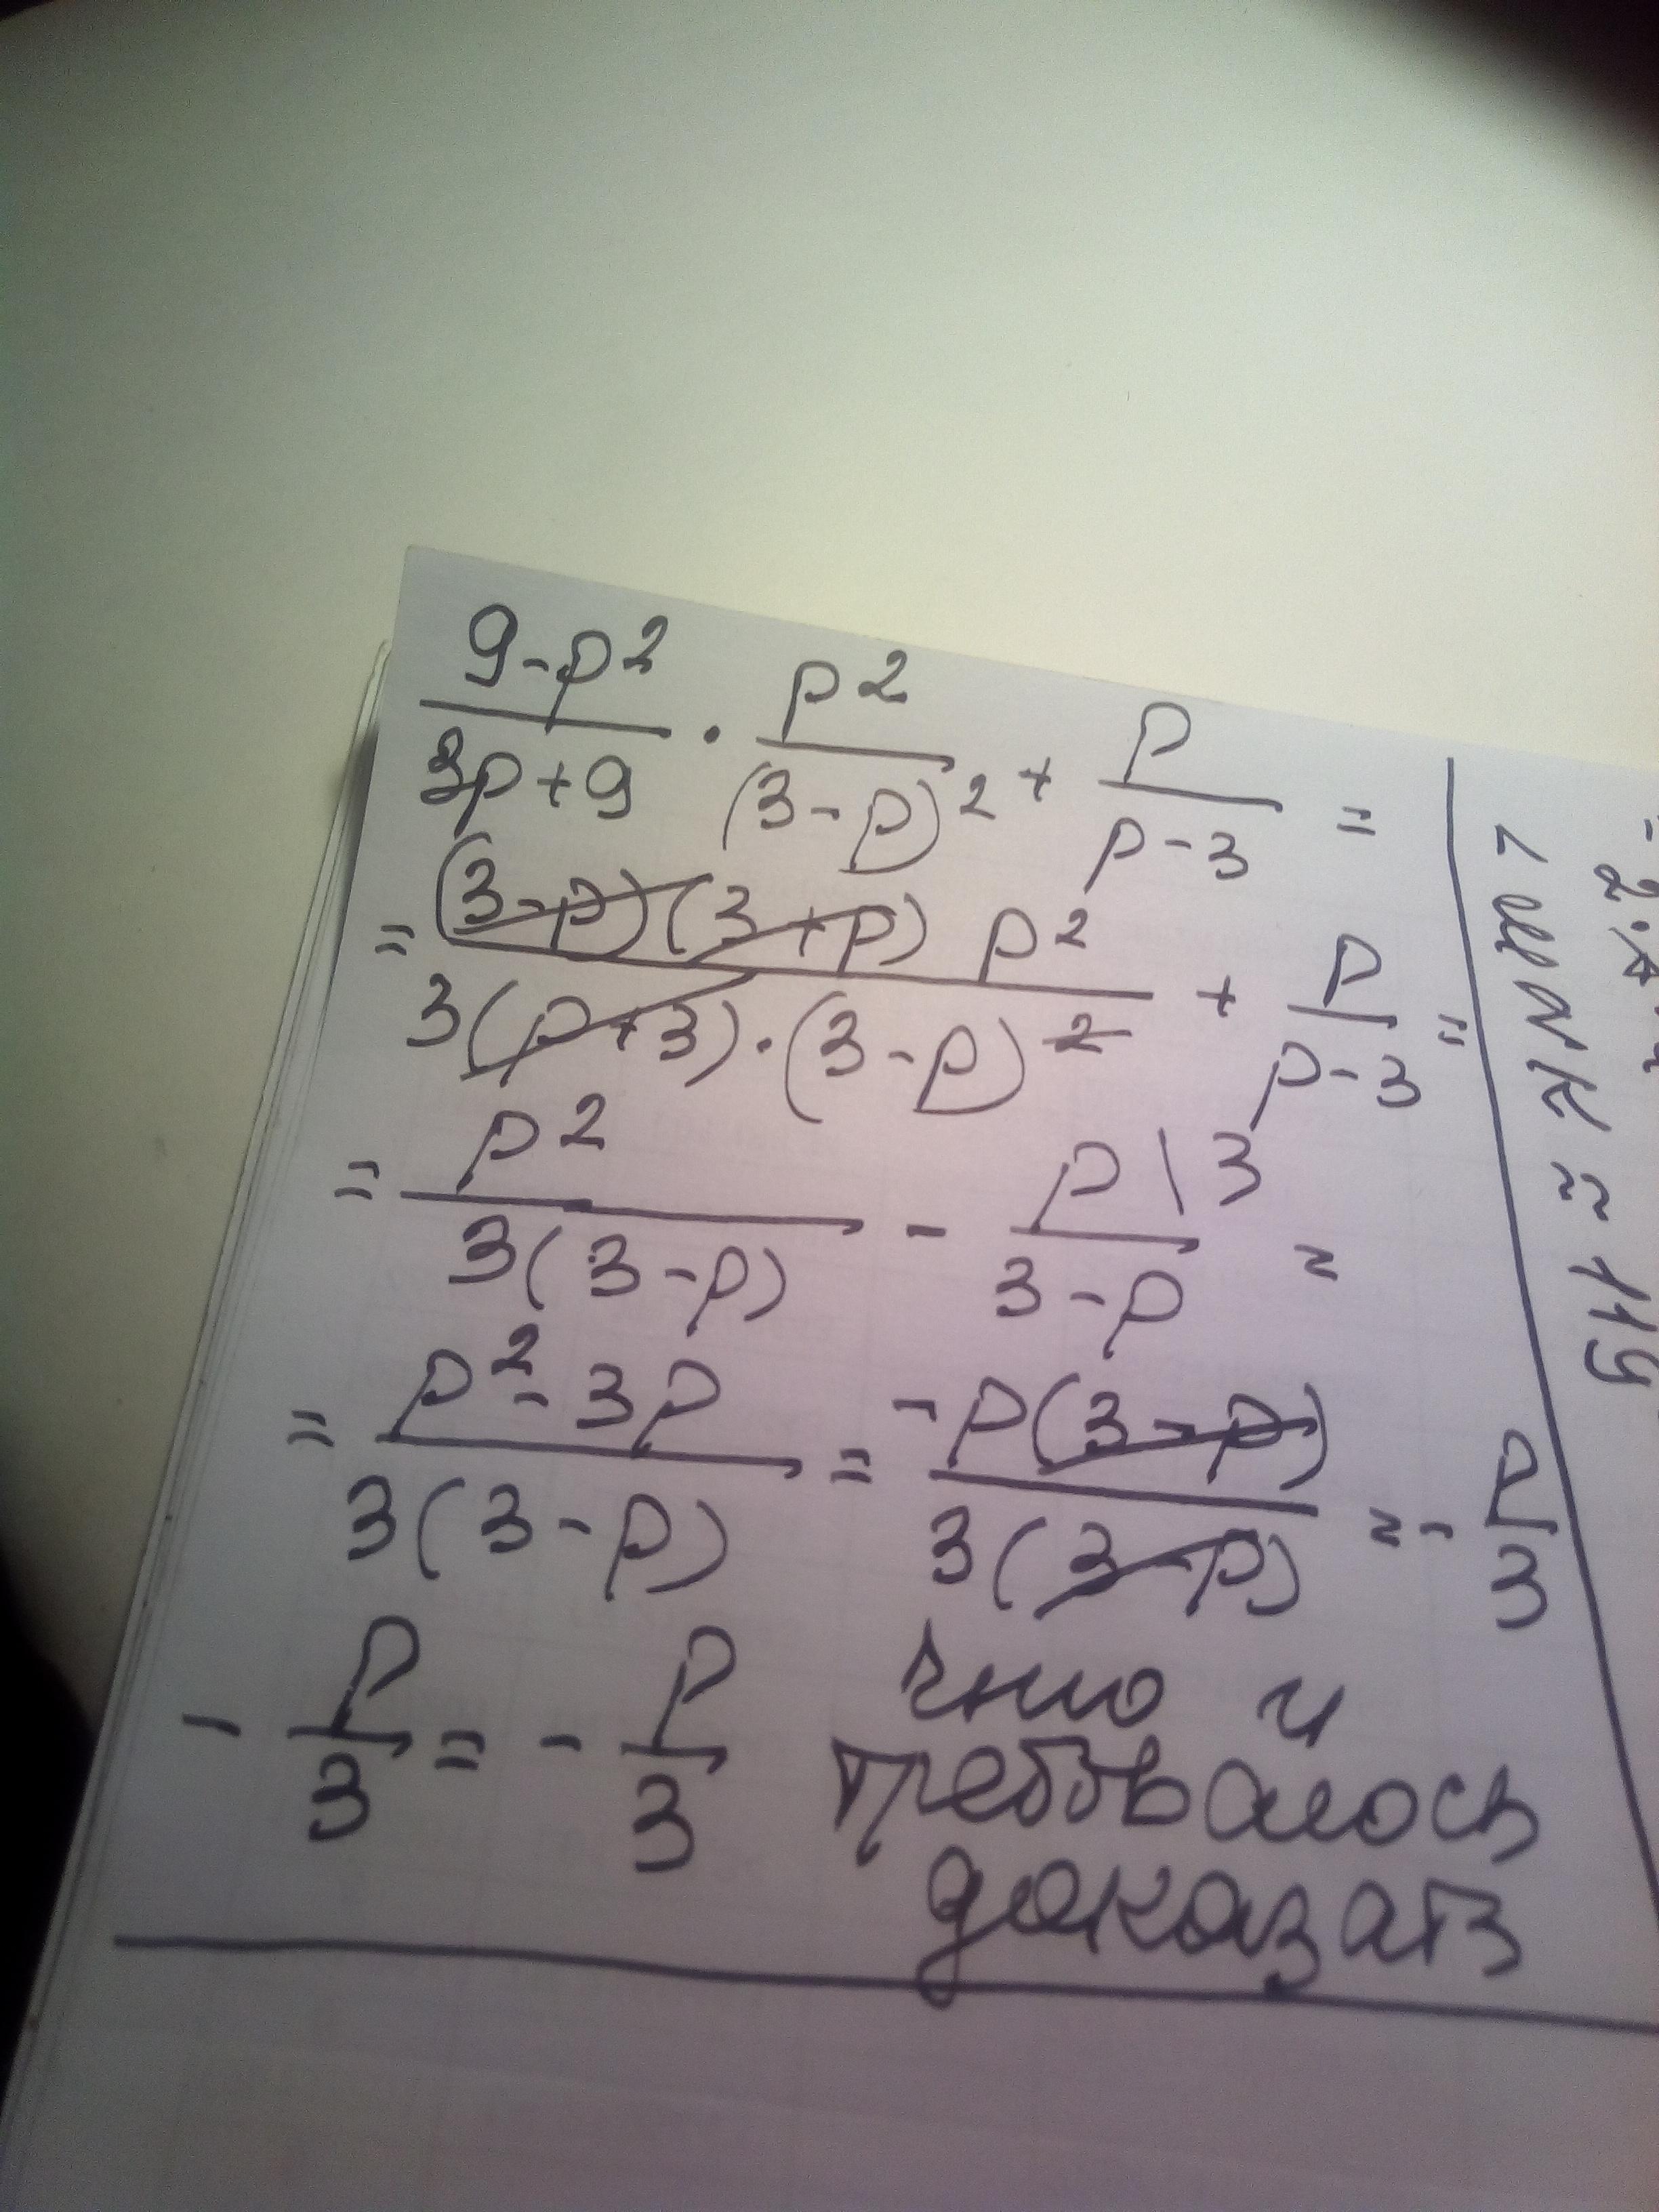 (9-p²)/(3p+9) · p²/(3-p)² + p/(p-3) =
= ((3-p)(3+p) p²)/(3(p+3)·(3-p)²) + p/(p-3) =
= p²/(3(3-p)) - p\3/(3-p) =
= (p²-3p)/(3(3-p)) = -p(3-p)/(3(3-p)) = - p/3
- p/3 = - p/3 что и
требовалось
доказать